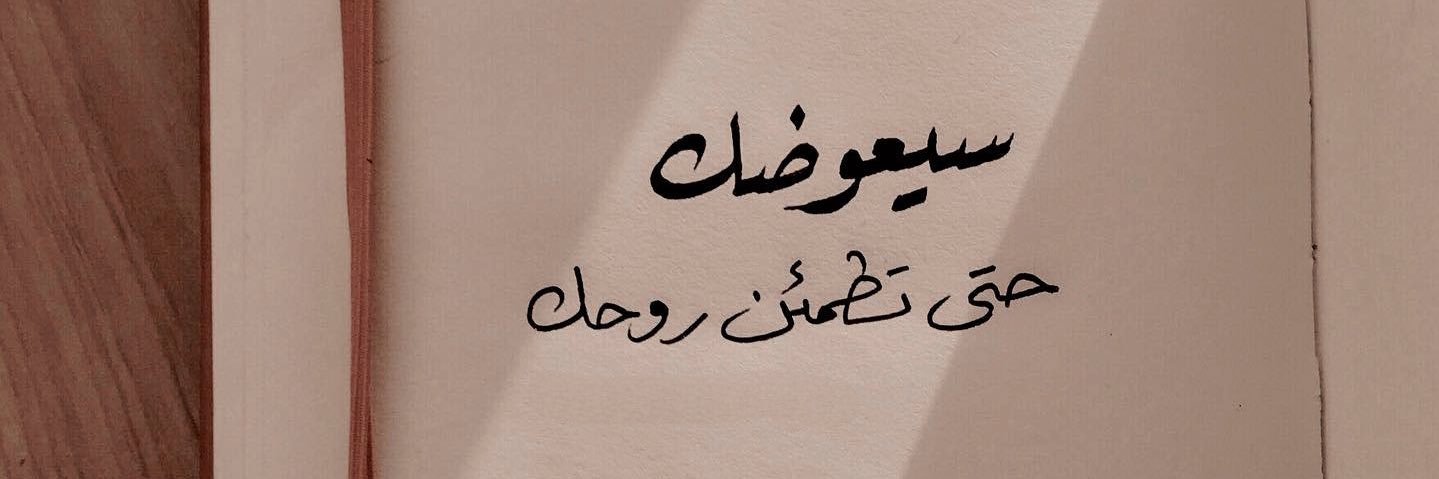 سيعوضك
حتى تطمئن روحك